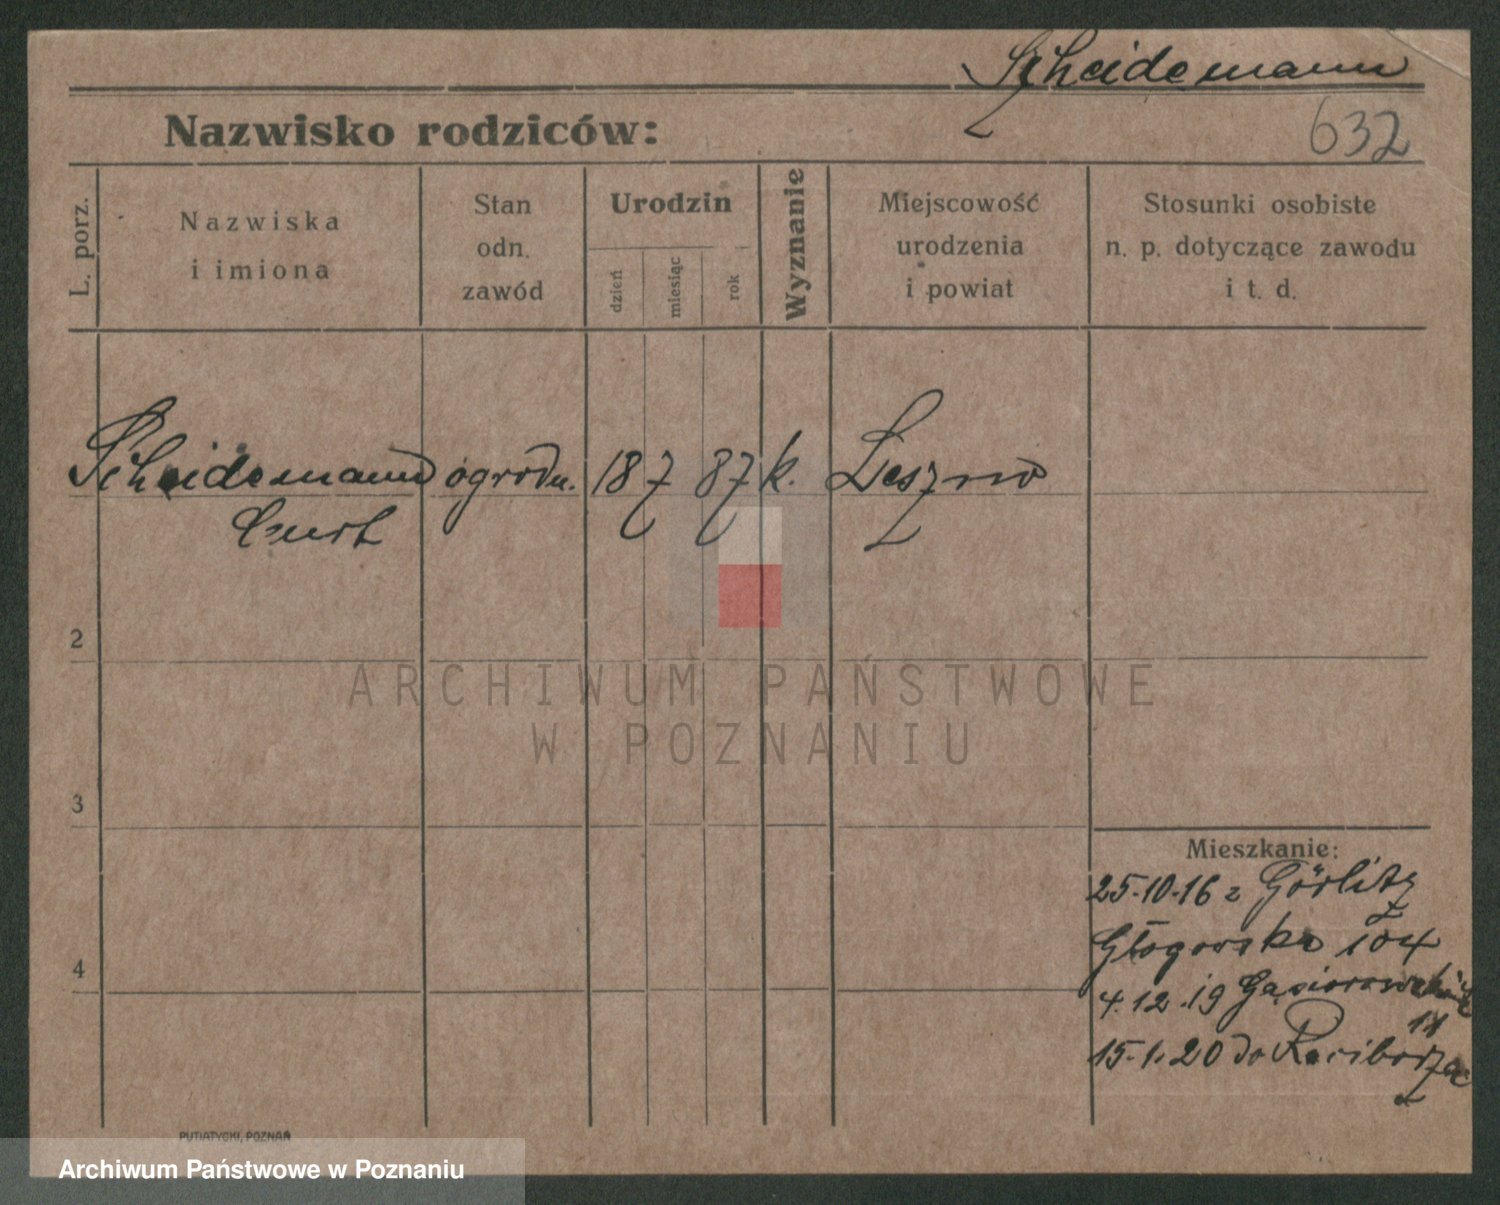 Scheidemann
Nazwisko rodziców:
632
L. porz.
Nazwiska
i imiona
Stan
odn.
zawód
Urodzin
dzień
miesiąc
rok
Wyznanie
Miejscowość
urodzenia
i powiat
Stosunki osobiste
n. p. dotyczące zawodu
i t. d.
Scheidemann ogrodn. 18 7 87 k. Leszno
Curt
2
3
4
Mieszkanie:
25.10.16 z Görlitz
Głogowska 104
4.12.19 Gąsiorowskich
11
15.1.20 do Raciborza
ARCHIWUM PAŃSTWOWE
W POZNANIU
PUTIATYCKI, POZNAŃ
Archiwum Państwowe w Poznaniu